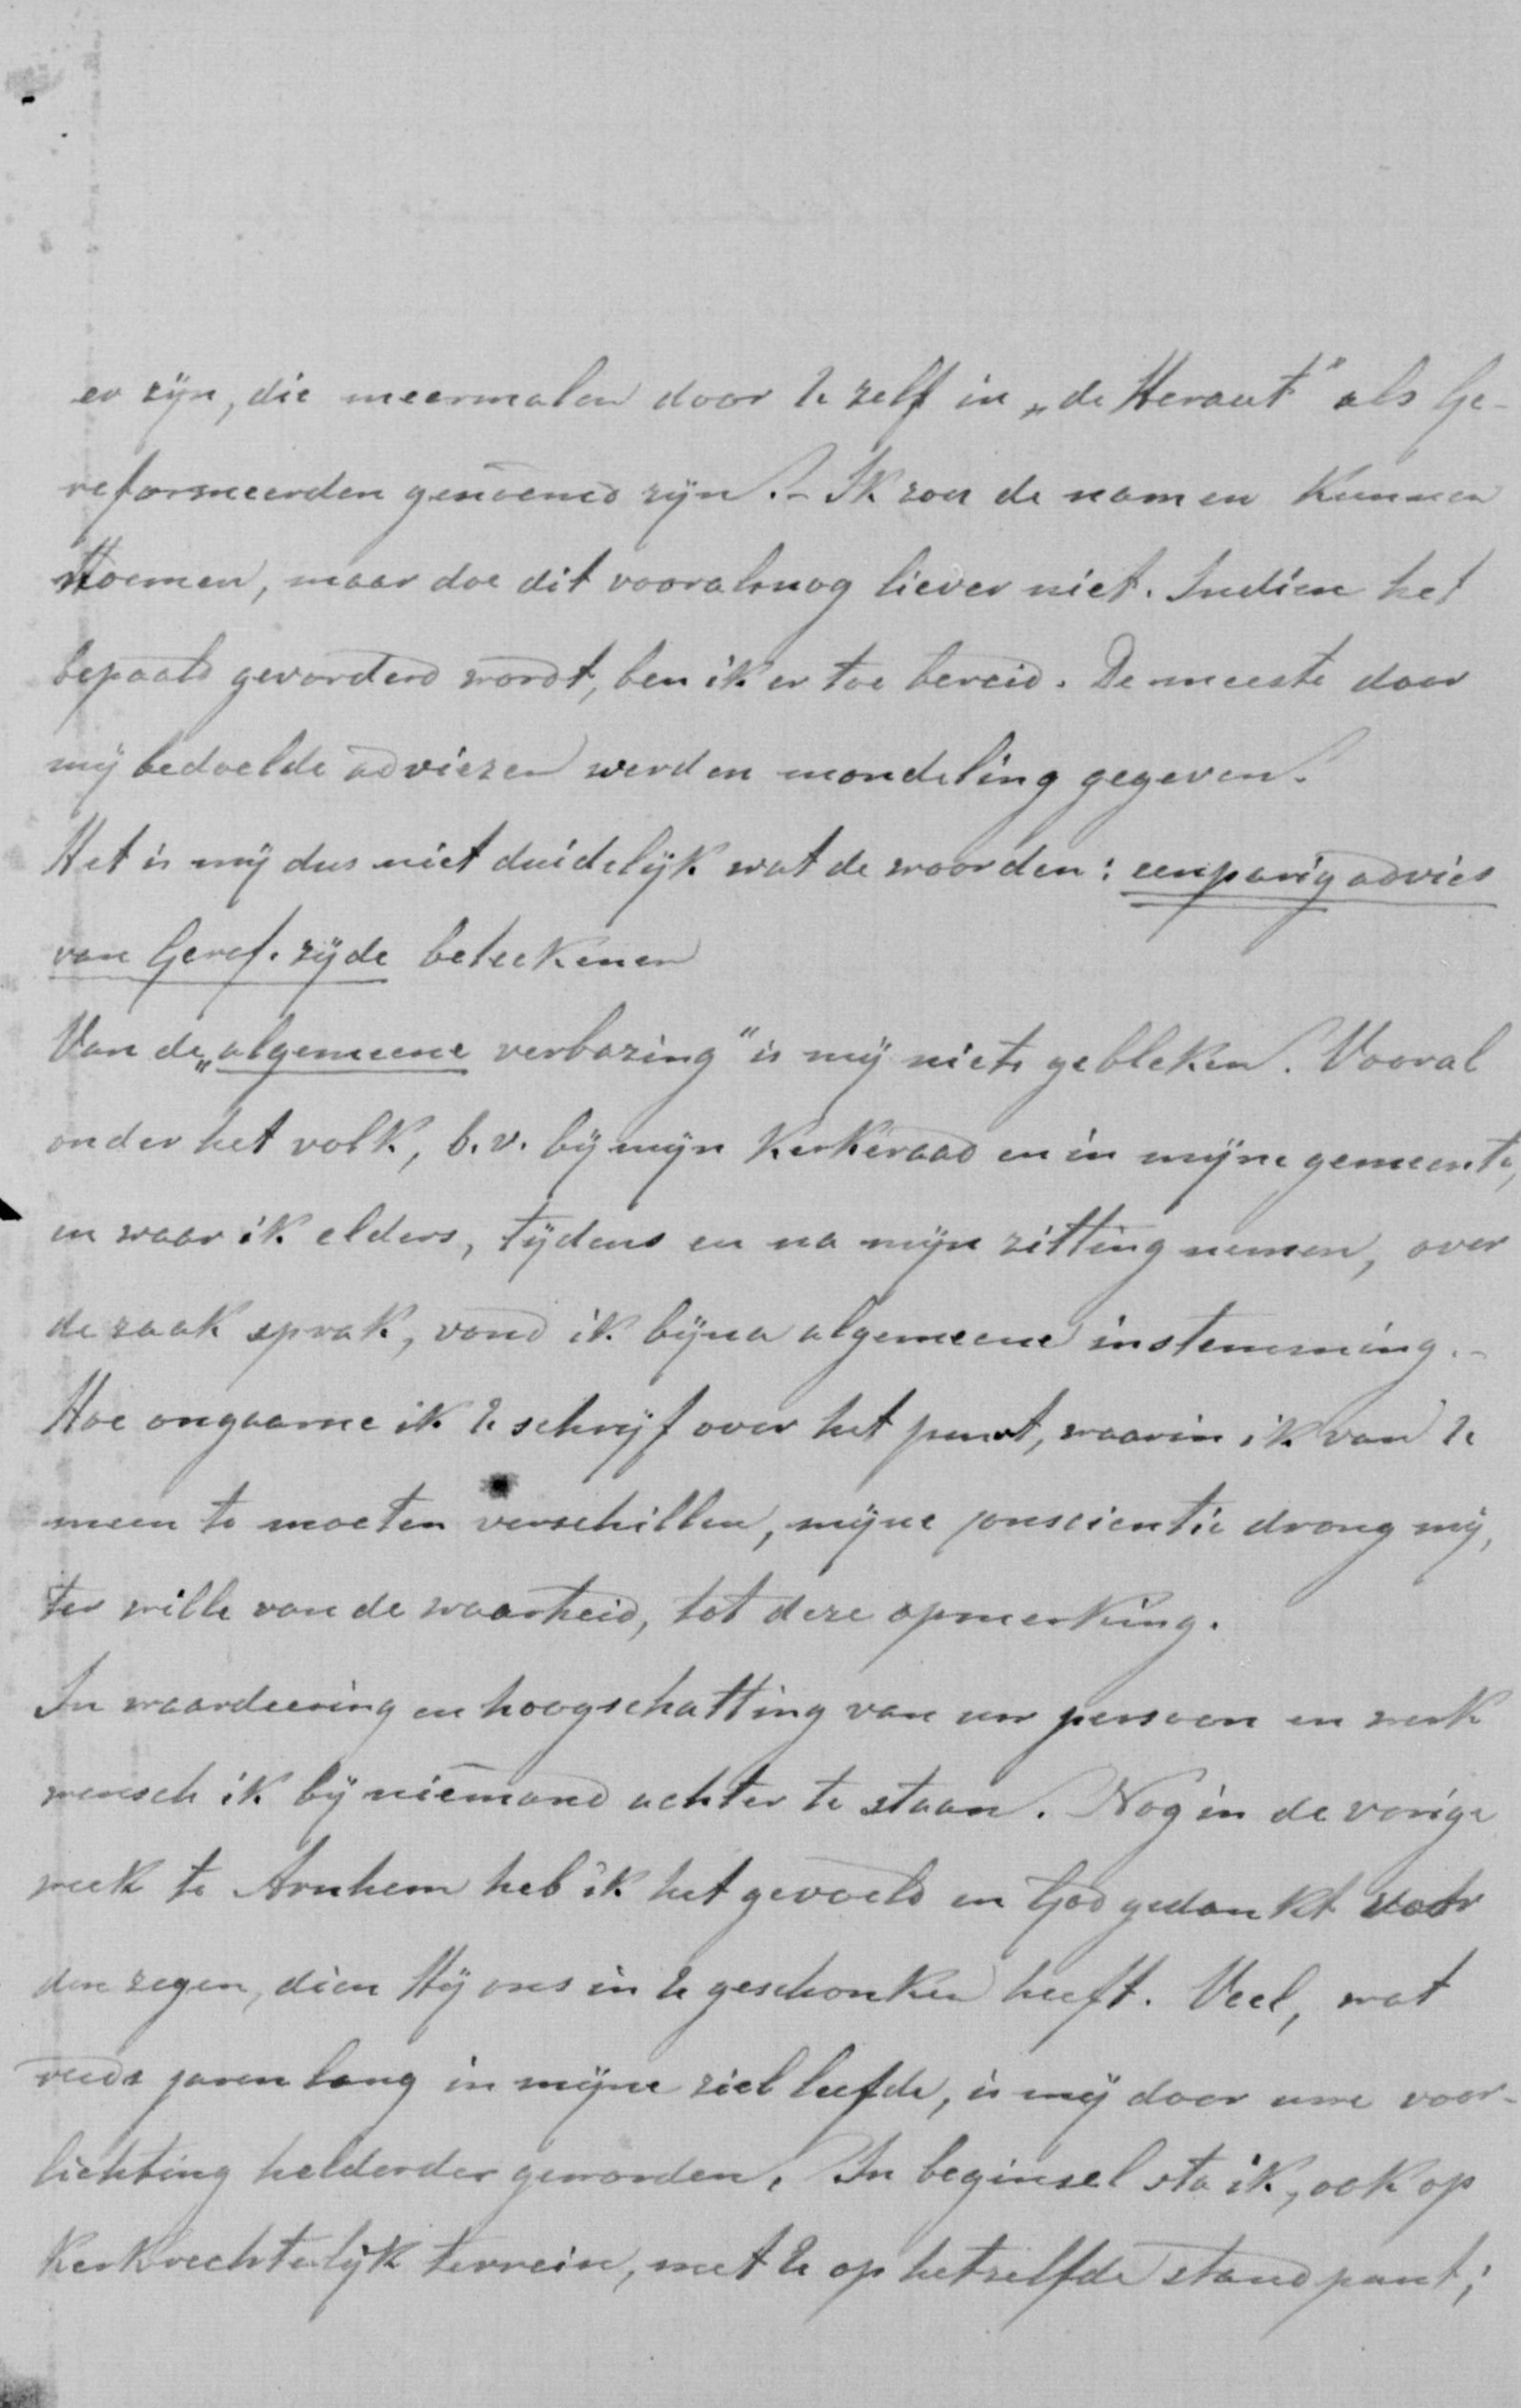 er zijn, die meermalen door U zelf in „de Heraut” als Ge-
reformeerden genoemd zijn.- Ik zou de namen kunnen
noemen, maar doe dit vooralsnog liever niet. Indien het
bepaald gevorderd wordt, ben ik er toe bereid. De meeste door
mij bedoelde adviezen werden mondeling gegeven.
Het is mij dus niet duidelijk wat de woorden: eenparig advies
van Geref. zijde beteekenen
Van de „algemeene verbazing” is mij niets gebleken. Vooral
onder het volk, b.v. bij mijn Kerkeraad en in mijne gemeente,
en waar ik elders, tijdens en na mijn zitting nemen, over
de zaak sprak, vond ik bijna algemeene instemming.-
Hoe ongaarne ik U schrijf over het punt, waarin ik van U
meen te moeten verschillen, mijne conscientie drong mij,
ter wille van de waarheid, tot deze opmerking.
In waardeering en hoogschatting van uw persoon en werk
wensch ik bij niemand achter te staan. Nog in de vorige
week te Arnhem heb ik het gevoeld en God gedankt voor
den zegen, dien Hij ons in U geschonken heeft. Veel, wat
reeds jaren lang in mijne ziel leefde, is mij door uwe voor-
lichting helderder geworden. In beginsel sta ik, ook op
Kerkrechtelijk terrein, met U op hetzelfde standpunt;